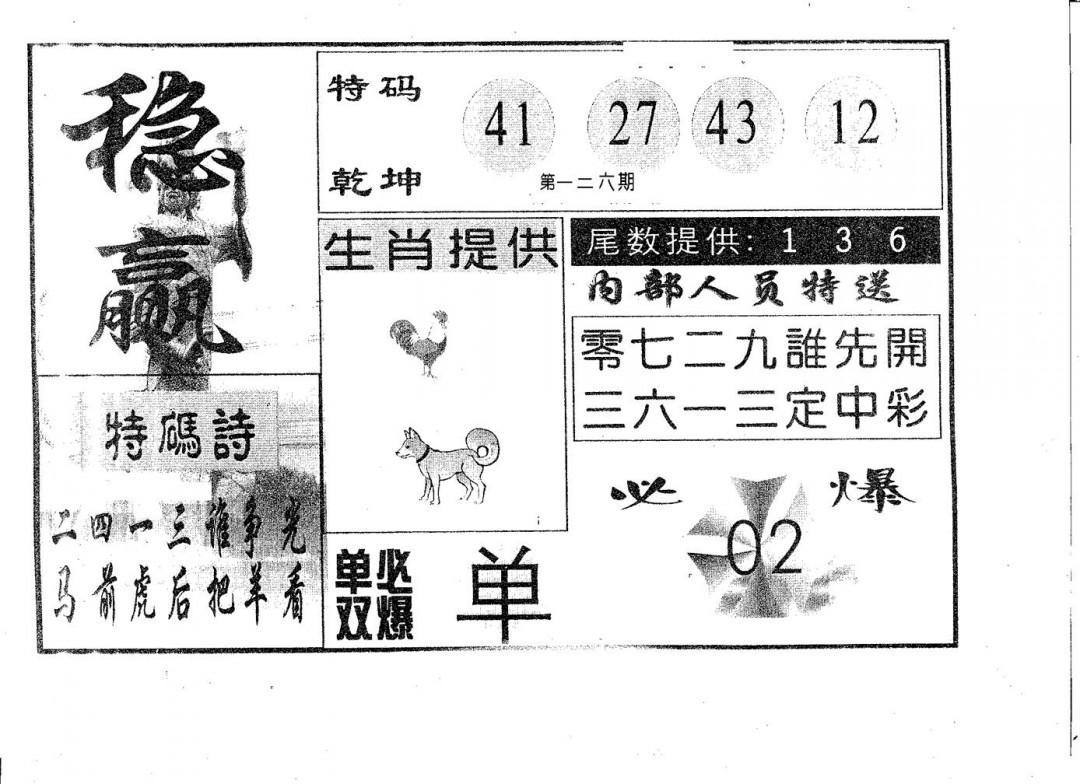 稳
赢
特码
乾坤
41 27 43 12
第一二六期
生肖提供
尾数提供: 1 3 6
内部人员特送
零七二九誰先開
三六一三定中彩
特碼詩
二四一三谁争光
马前虎后把羊看
必爆
02
单双必爆
单